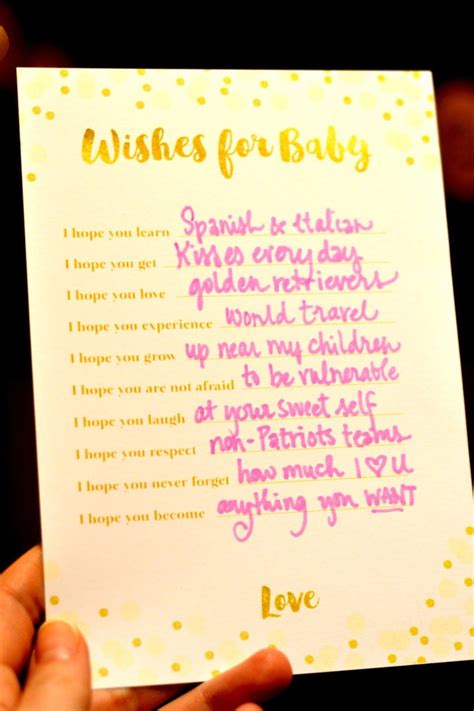 Wishes for Baby
I hope you learn Spanish & Italian
I hope you get Kisses every day
I hope you love golden retrievers
I hope you experience world travel
I hope you grow up near my children
I hope you are not afraid to be vulnerable
I hope you laugh at your sweet self
I hope you respect non-Patriots teams
I hope you never forget how much I ♡ U
I hope you become anything you WANT
Love